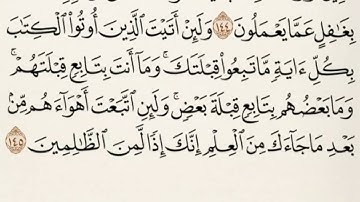 بِغَٰفِلٍ عَمَّا يَعْمَلُونَ ١٤٤ وَلَئِنْ أَتَيْتَ ٱلَّذِينَ أُوتُوا۟ ٱلْكِتَٰبَ
بِكُلِّ ءَايَةٍ مَّا تَبِعُوا۟ قِبْلَتَكَ ۚ وَمَآ أَنتَ بِتَابِعٍ قِبْلَتَهُمْ ۚ
وَمَا بَعْضُهُم بِتَابِعٍ قِبْلَةَ بَعْضٍ ۚ وَلَئِنِ ٱتَّبَعْتَ أَهْوَآءَهُم مِّنۢ
بَعْدِ مَا جَآءَكَ مِنَ ٱلْعِلْمِ إِنَّكَ إِذًا لَّمِنَ ٱلظَّٰلِمِينَ ١٤٥